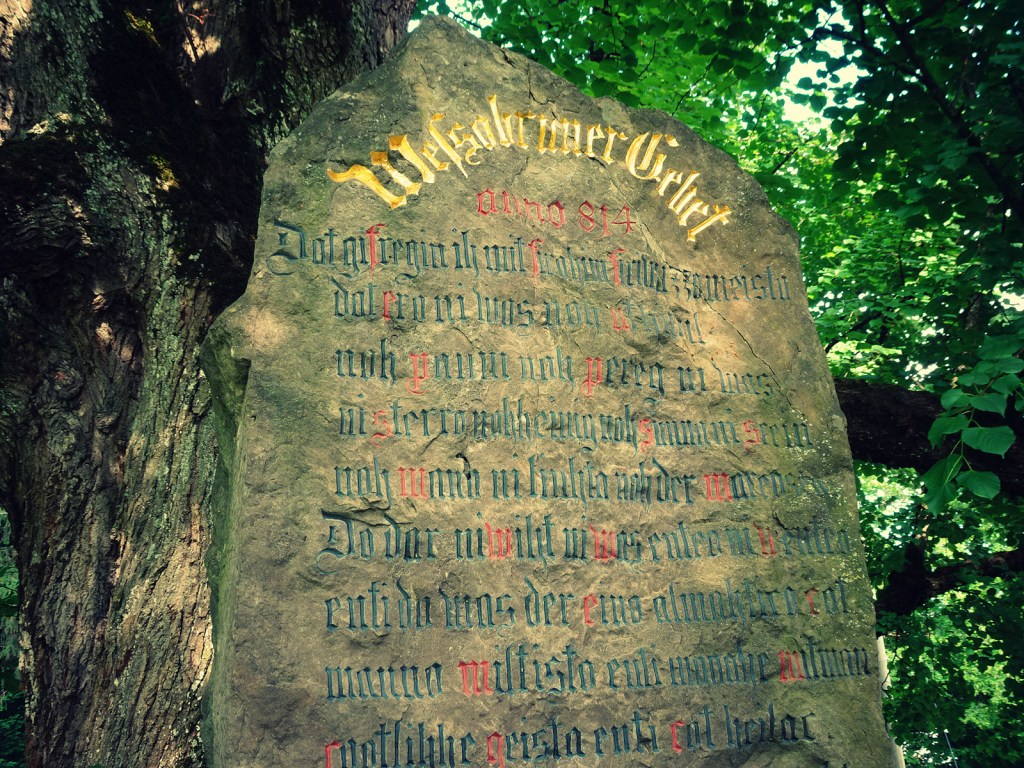 Wessobruner Gebet
anno 814
Dat gifregin ih mit firahim firiwizzo meista
dat ero ni was noh ufhimil
noh paum noh pereg ni was
ni sterro nohheinig noh sunna ni scein
noh mano ni liuhta noh der mareo seo
Do dar niwiht ni was enteo ni wenteo
enti do was der eino almahtico cot
manno miltisto enti manake mitman
cootlihhe geista enti cot heilac.